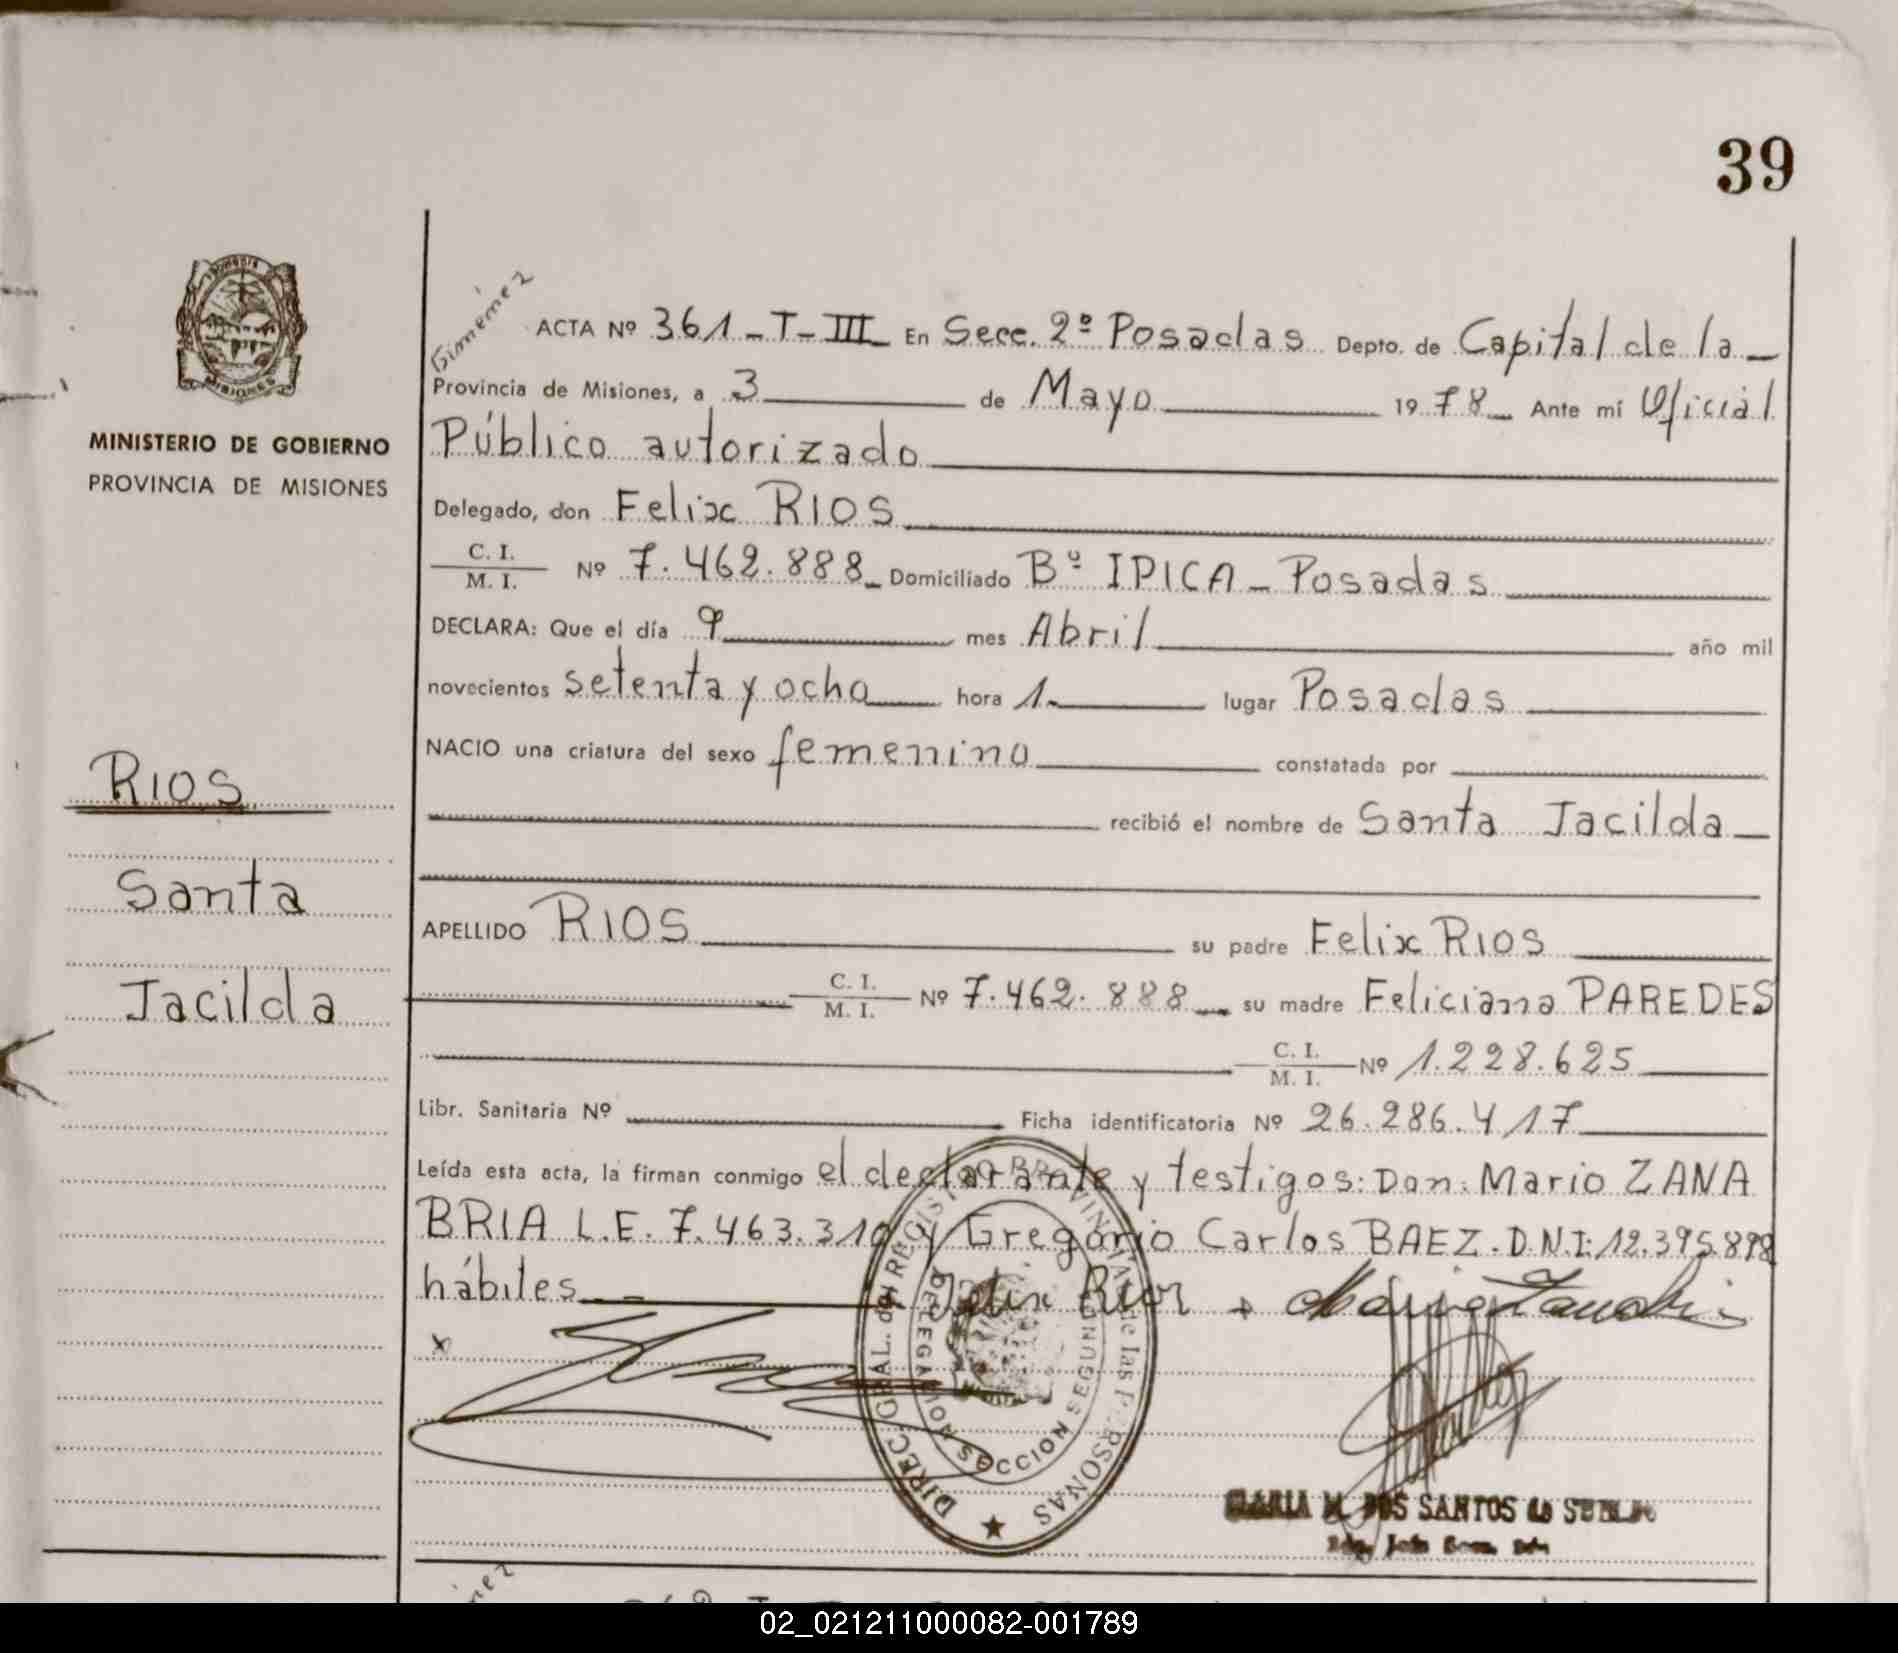 39
Giménez
ACTA Nº 361-T-III En Secc. 2º Posadas Depto. de Capital de la
Provincia de Misiones, a 3 de Mayo 1978 Ante mí Oficial
MINISTERIO DE GOBIERNO
PROVINCIA DE MISIONES
Público autorizado
Delegado, don Felix RIOS
C. I.
M. I. Nº 7.462.888 Domiciliado Bº IPICA - Posadas
DECLARA: Que el día 9 mes Abril año mil
novecientos setenta y ocho hora 1. lugar Posadas
NACIO una criatura del sexo femenino constatada por
recibió el nombre de Santa Jacilda
RIOS
Santa
Jacilda
APELLIDO RIOS su padre Felix RIOS
C. I.
M. I. Nº 7.462.888 su madre Feliciana PAREDES
C. I.
M. I. Nº 1.228.625
Libr. Sanitaria Nº Ficha identificatoria Nº 26.286.417
Leída esta acta, la firman conmigo el declarante y testigos: Don: Mario ZANA
BRIA L.E. 7.463.310 y Gregorio Carlos BAEZ. D.N.I: 12.395.898
hábiles
Felix Rios
DIREC. GRAL. del REGISTRO PROVINCIAL de las PERSONAS
DELEGACION SECCION SEGUNDA
M. DOS SANTOS
02_021211000082-001789